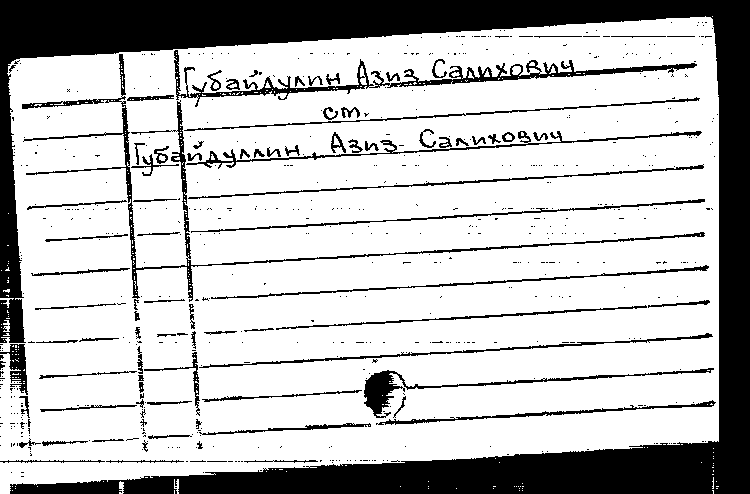 Губайдулин, Азиз Салихович
см.
Губайдуллин, Азиз Салихович